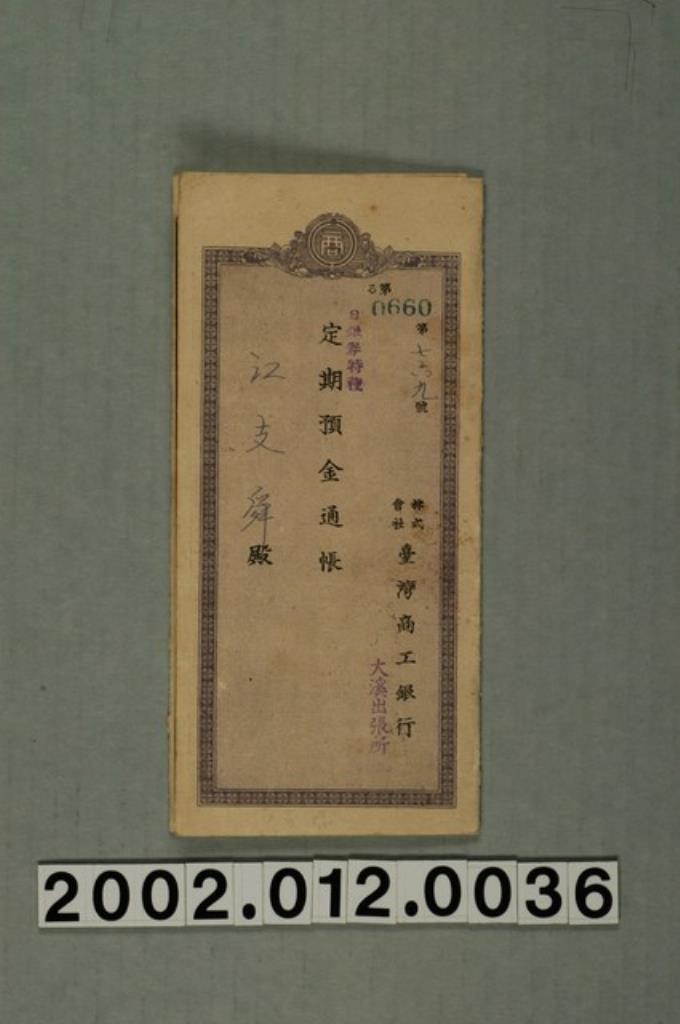 商
る第
0660
第七六九號
株式會社
臺灣商工銀行
大溪出張所
日銀券特種
定期預金通帳
江支舜殿
2002.012.0036